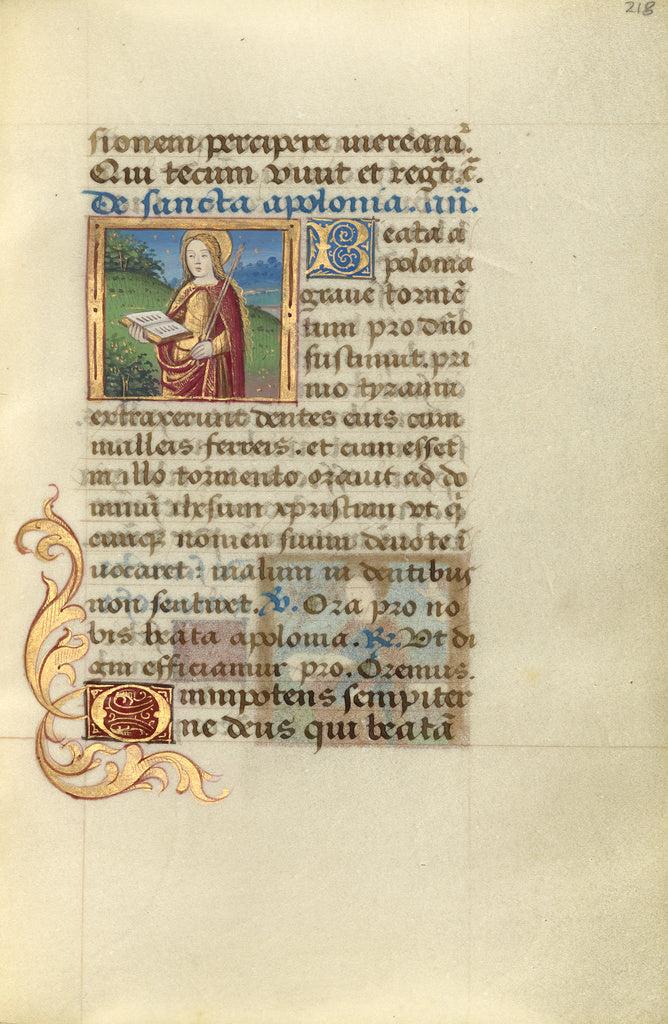 218
sionem percipere meream̃.
Qui tecum viuit et regt̃. c̃.
De sancta apolonia. añ.
Beata a
polonia
graue tormẽ
tum pro dño
sustinuit. pri
mo tyranni
extraxerunt dentes eius cum
malleis ferreis. et cum esset
in illo tormento orauit ad do
minũ ihesum xpristum vt. q̃
cunq̃ nomen suum deuote ĩ
uocaret: malum in dentibus
non sentiret. V. Ora pro no
bis beata apolonia. Re. Vt di
gni efficiamur pro. Oremus.
Omnipotens sempiter
ne deus qui beatã